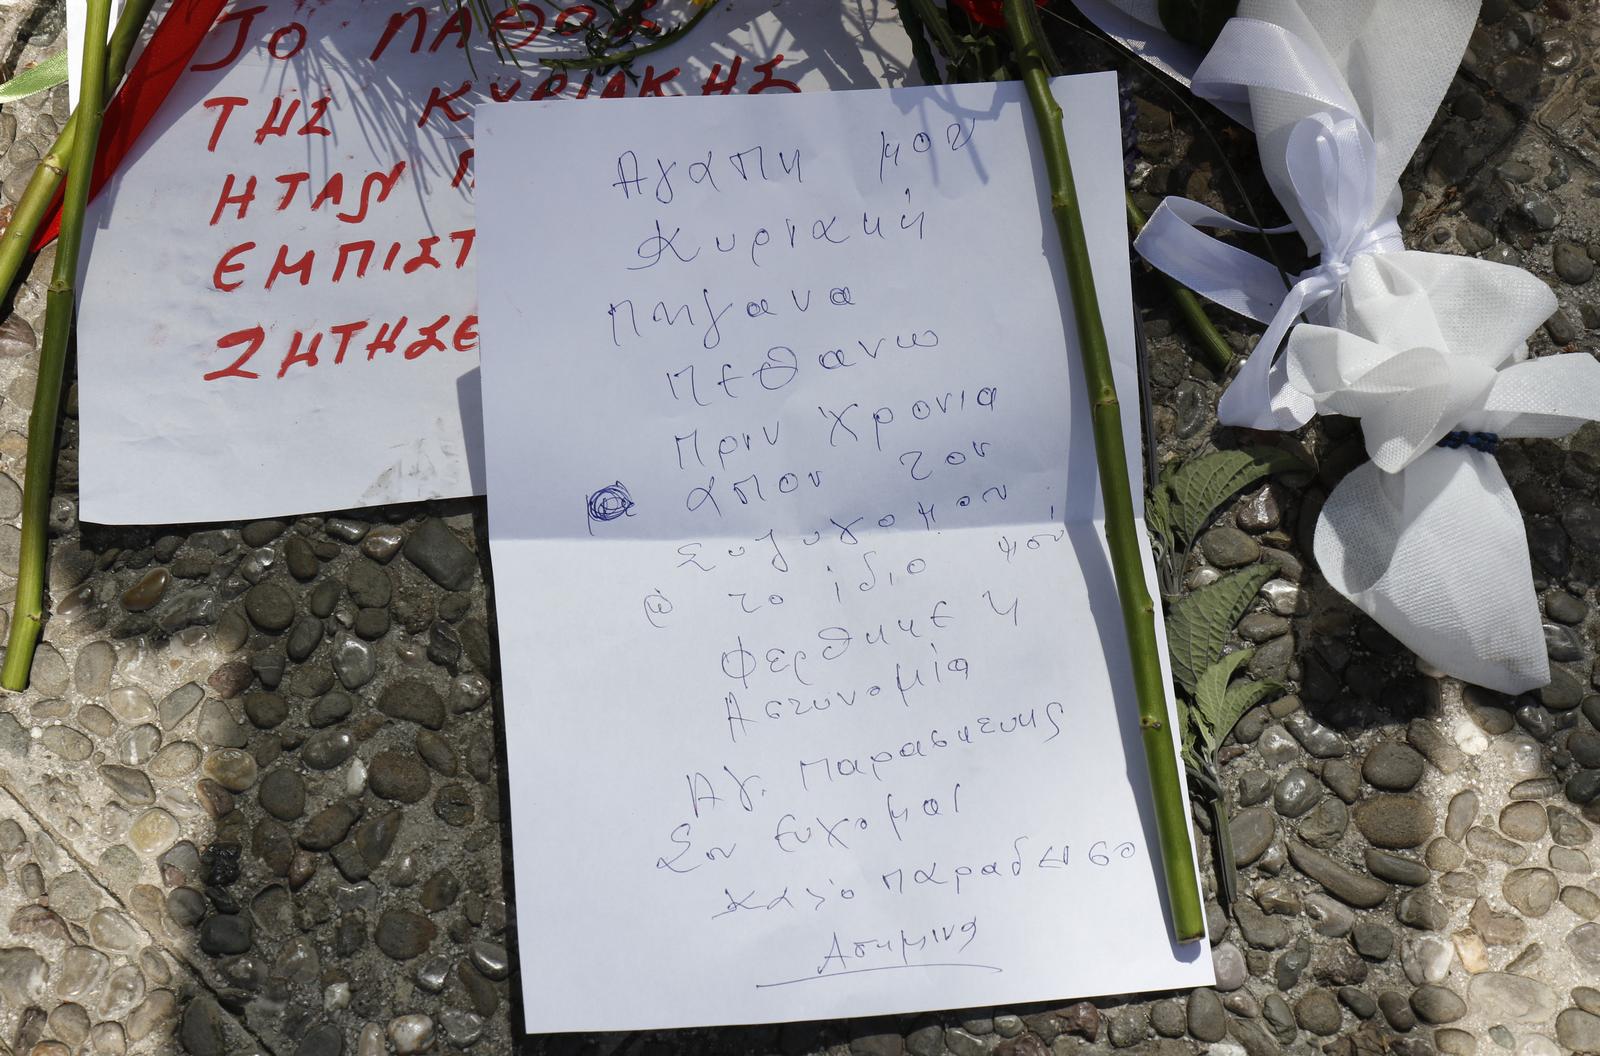 ΤΟ ΠΑΘΟΣ
ΤΗΣ ΚΥΡΙΑΚΗΣ
ΗΤΑΝ
ΕΜΠΙΣΤ
ΖΗΤΗΣΕ
Αγαπη μου
Κυριακή
Πηγανα
πεθανω
πριν χρονια
απου τον
Συζυγο μου
το ίδιο σου
φερθηκε η
Αστυνομία
Αγ. Παρασκευης
Σου ευχομαι
καλό παραδεισο
Ασημινα